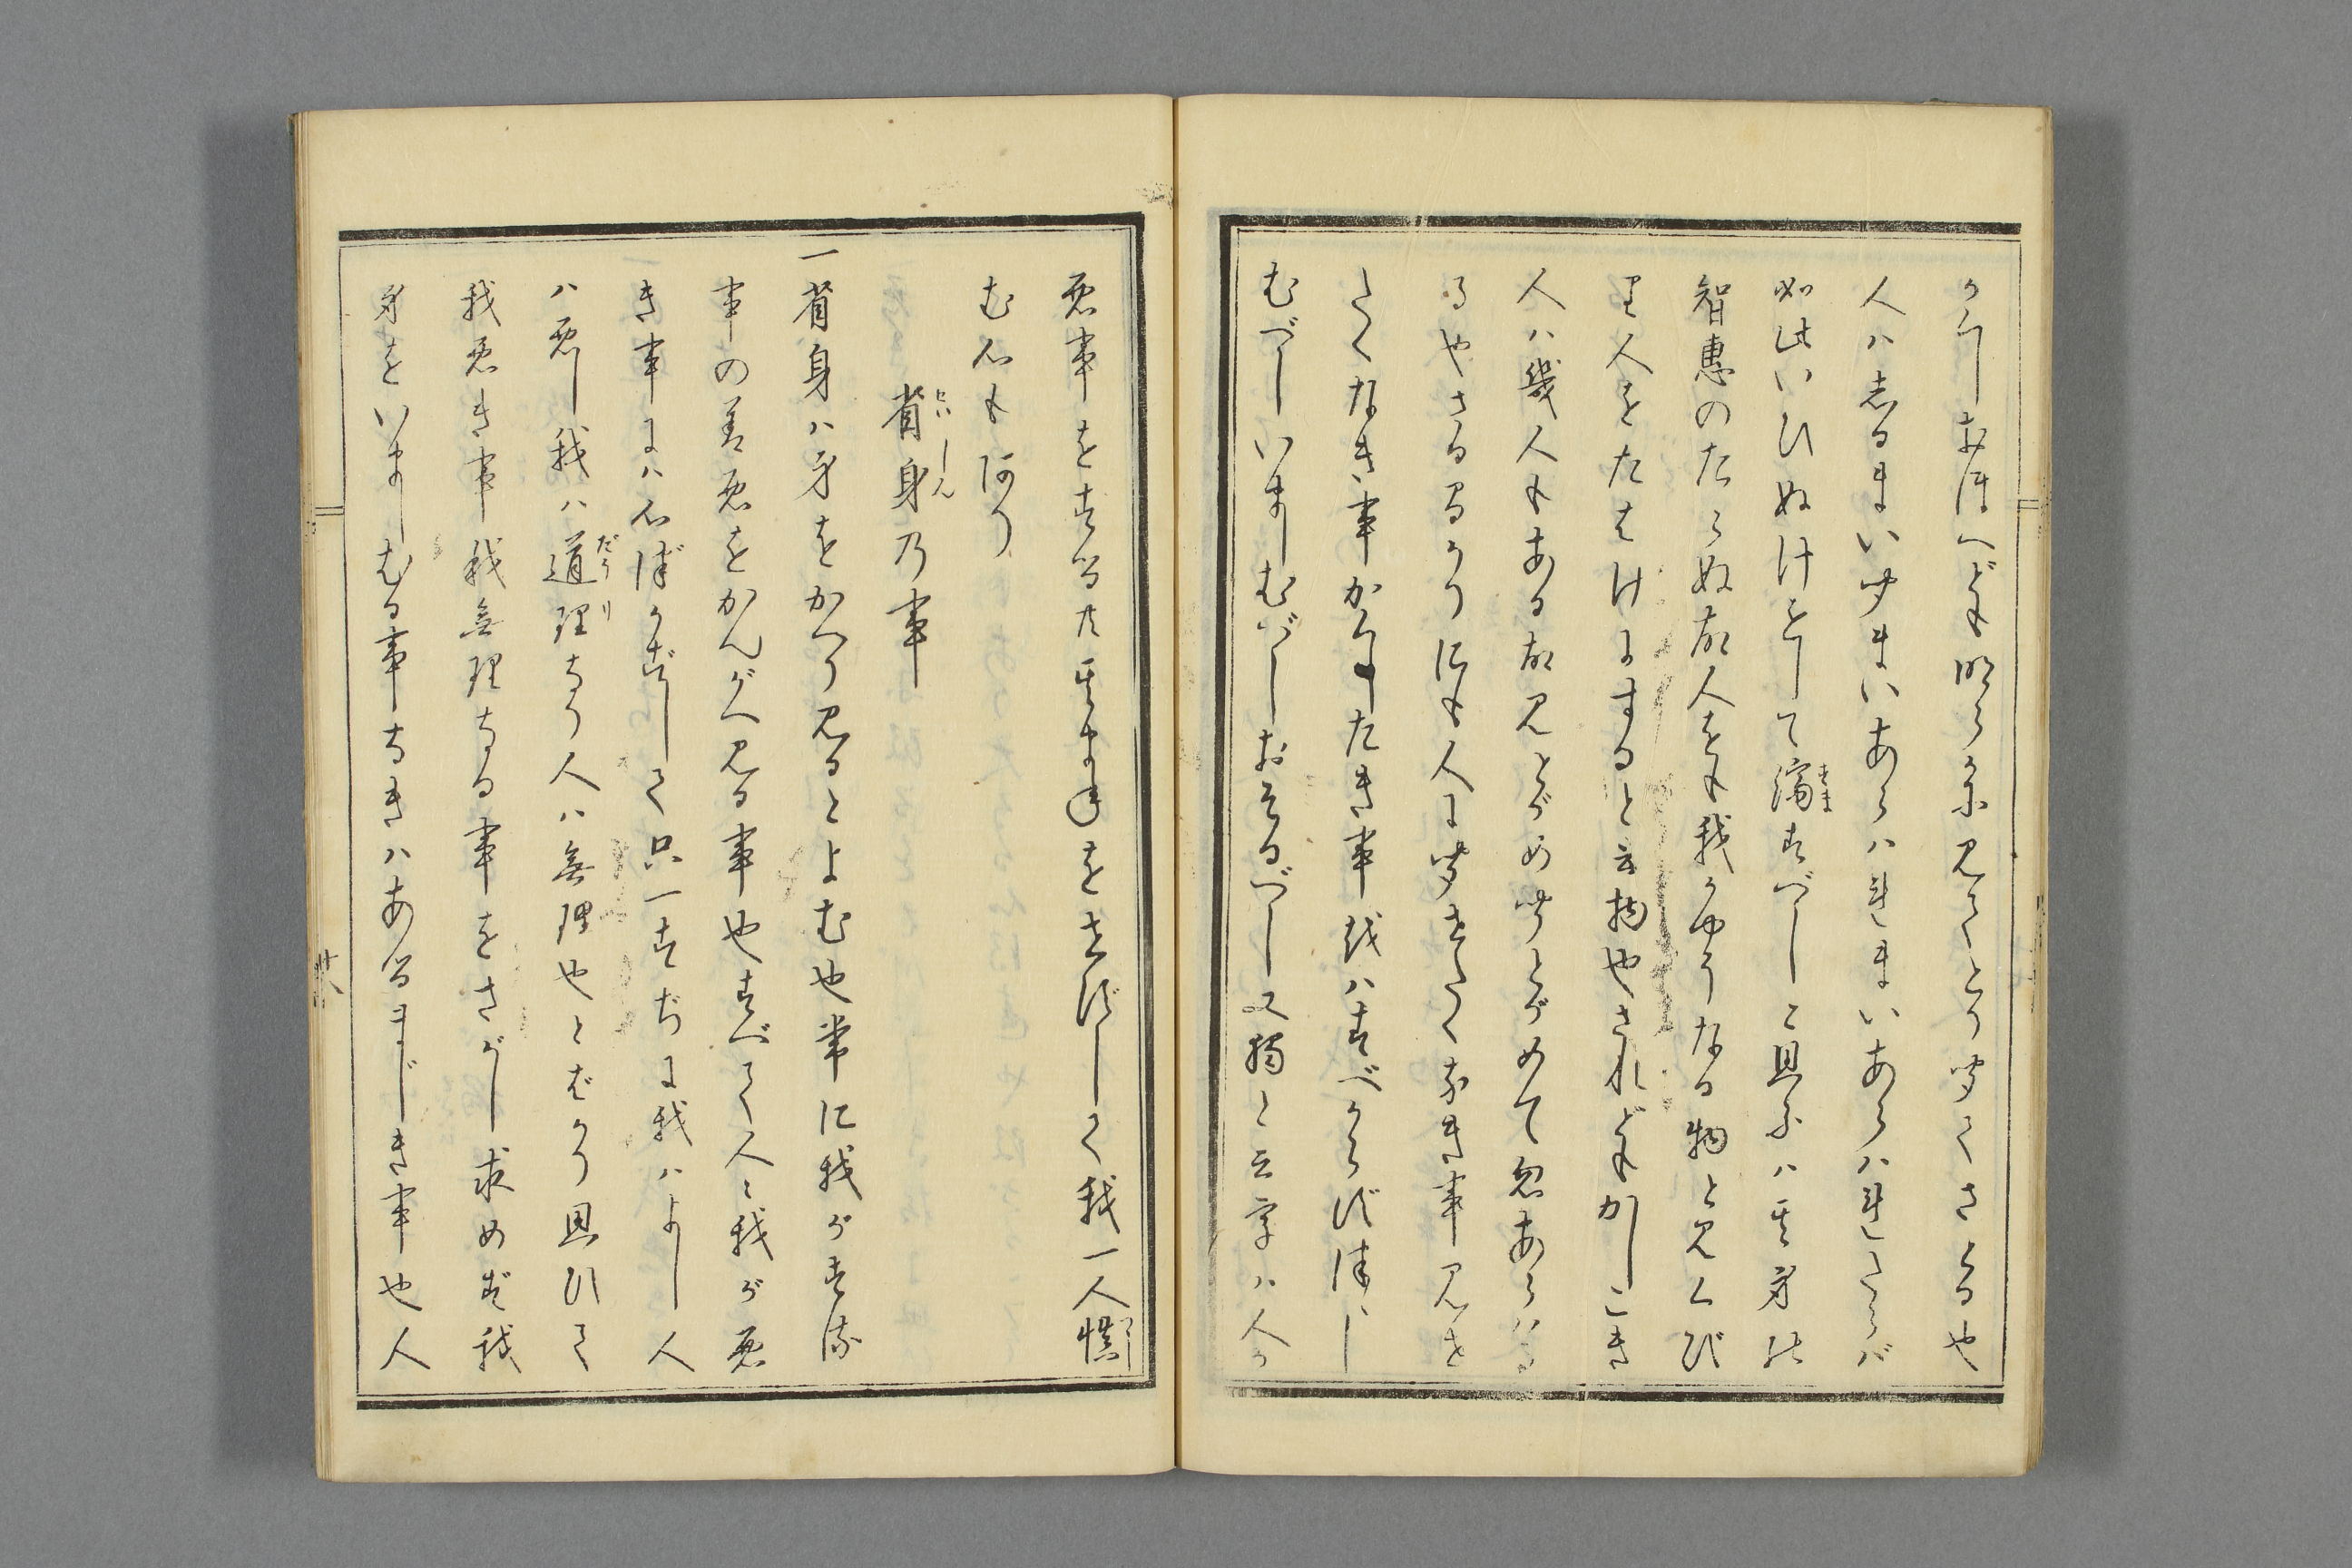 かくしおほへども明らかに見てとり聞てさとるや
人ハしるまいやまいあらハれまいあらハれたらバ
如此いひぬけをして済すべしと思ふハ其身の
智恵のたらぬ故人をも我かやうなる物と見くび
り人をたはけにすると云物也されどもかしこき
人ハ幾人もある故見とがめ聞とがめて忽あらハる
る也さるるかりにも人に聞せたくなき事見せ
たくなき事かくしたき事越ハすべからずつゝし
むべしいましむべしおそるべし又独と云字ハ人か
悪事をするとも其まねをせずして我一人慎
む心も阿り
省身乃事
一省身ハ身をかへり見るとよむ也常に我がする
事の善悪をかんがへ見る事也すべて人〻我が悪
き事にハ心づかずして只一すぢに我ハよし人
ハ悪し我ハ道理なり人ハ無理也とばかり思ひて
我悪き事我無理なる事をさがし求めず我
身をいましむる事なきハあるまじき事也人
廿八